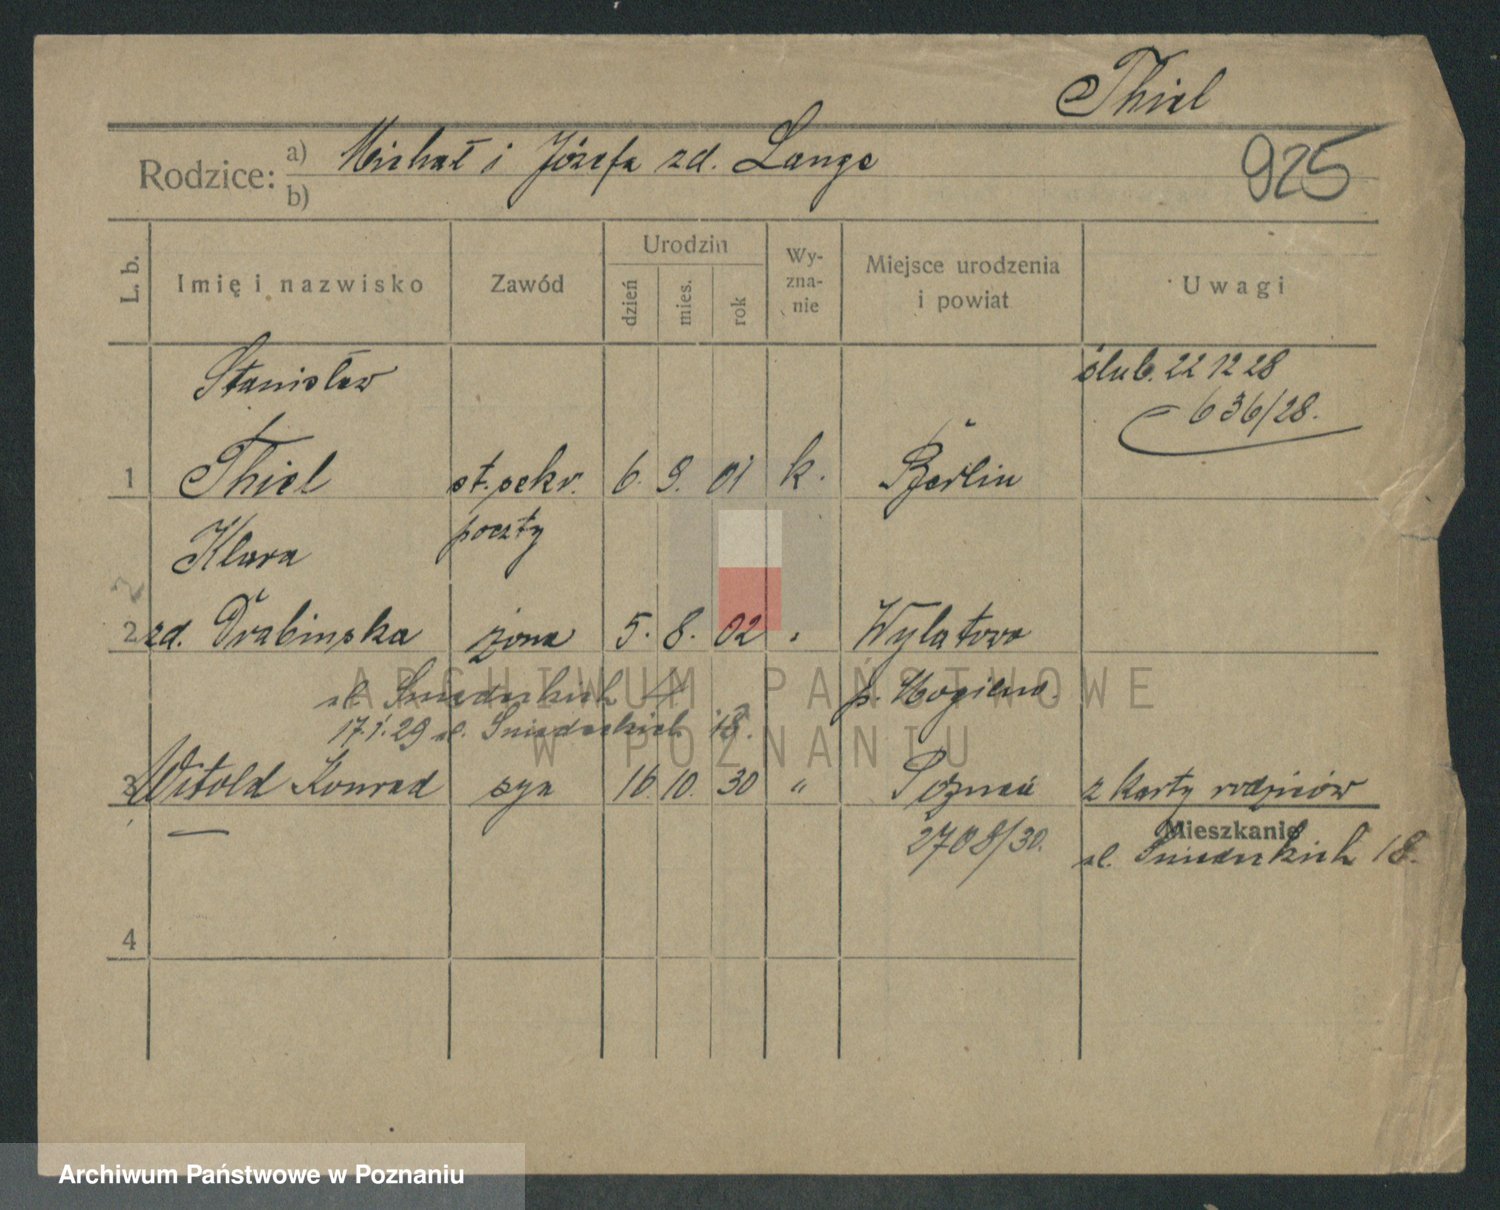 Thiel
Rodzice: a) Michał i Józefa zd. Lange
b)
925
L. b.
Imię i nazwisko
Zawód
Urodzin
dzień
mies.
rok
Wy-
zna-
nie
Miejsce urodzenia
i powiat
Uwagi
Stanisław
ślub. 22 12 28
636/28.
1 Thiel st. sekr. 6. 9. 01 k. Berlin
poczty
Klara
2
2 zd. Drabińska żona 5. 8. 02 Wylatowo
ul. Śniadeckich p. Mogilno.
17.1.29 ul. Śniadeckich 18.
3 Witold Konrad syn 16. 10. 30 " Poznań z karty rodziców
2708/30.
Mieszkanie
ul. Śniadeckich 18.
4
ARCHIWUM PAŃSTWOWE
W POZNANIU
Archiwum Państwowe w Poznaniu